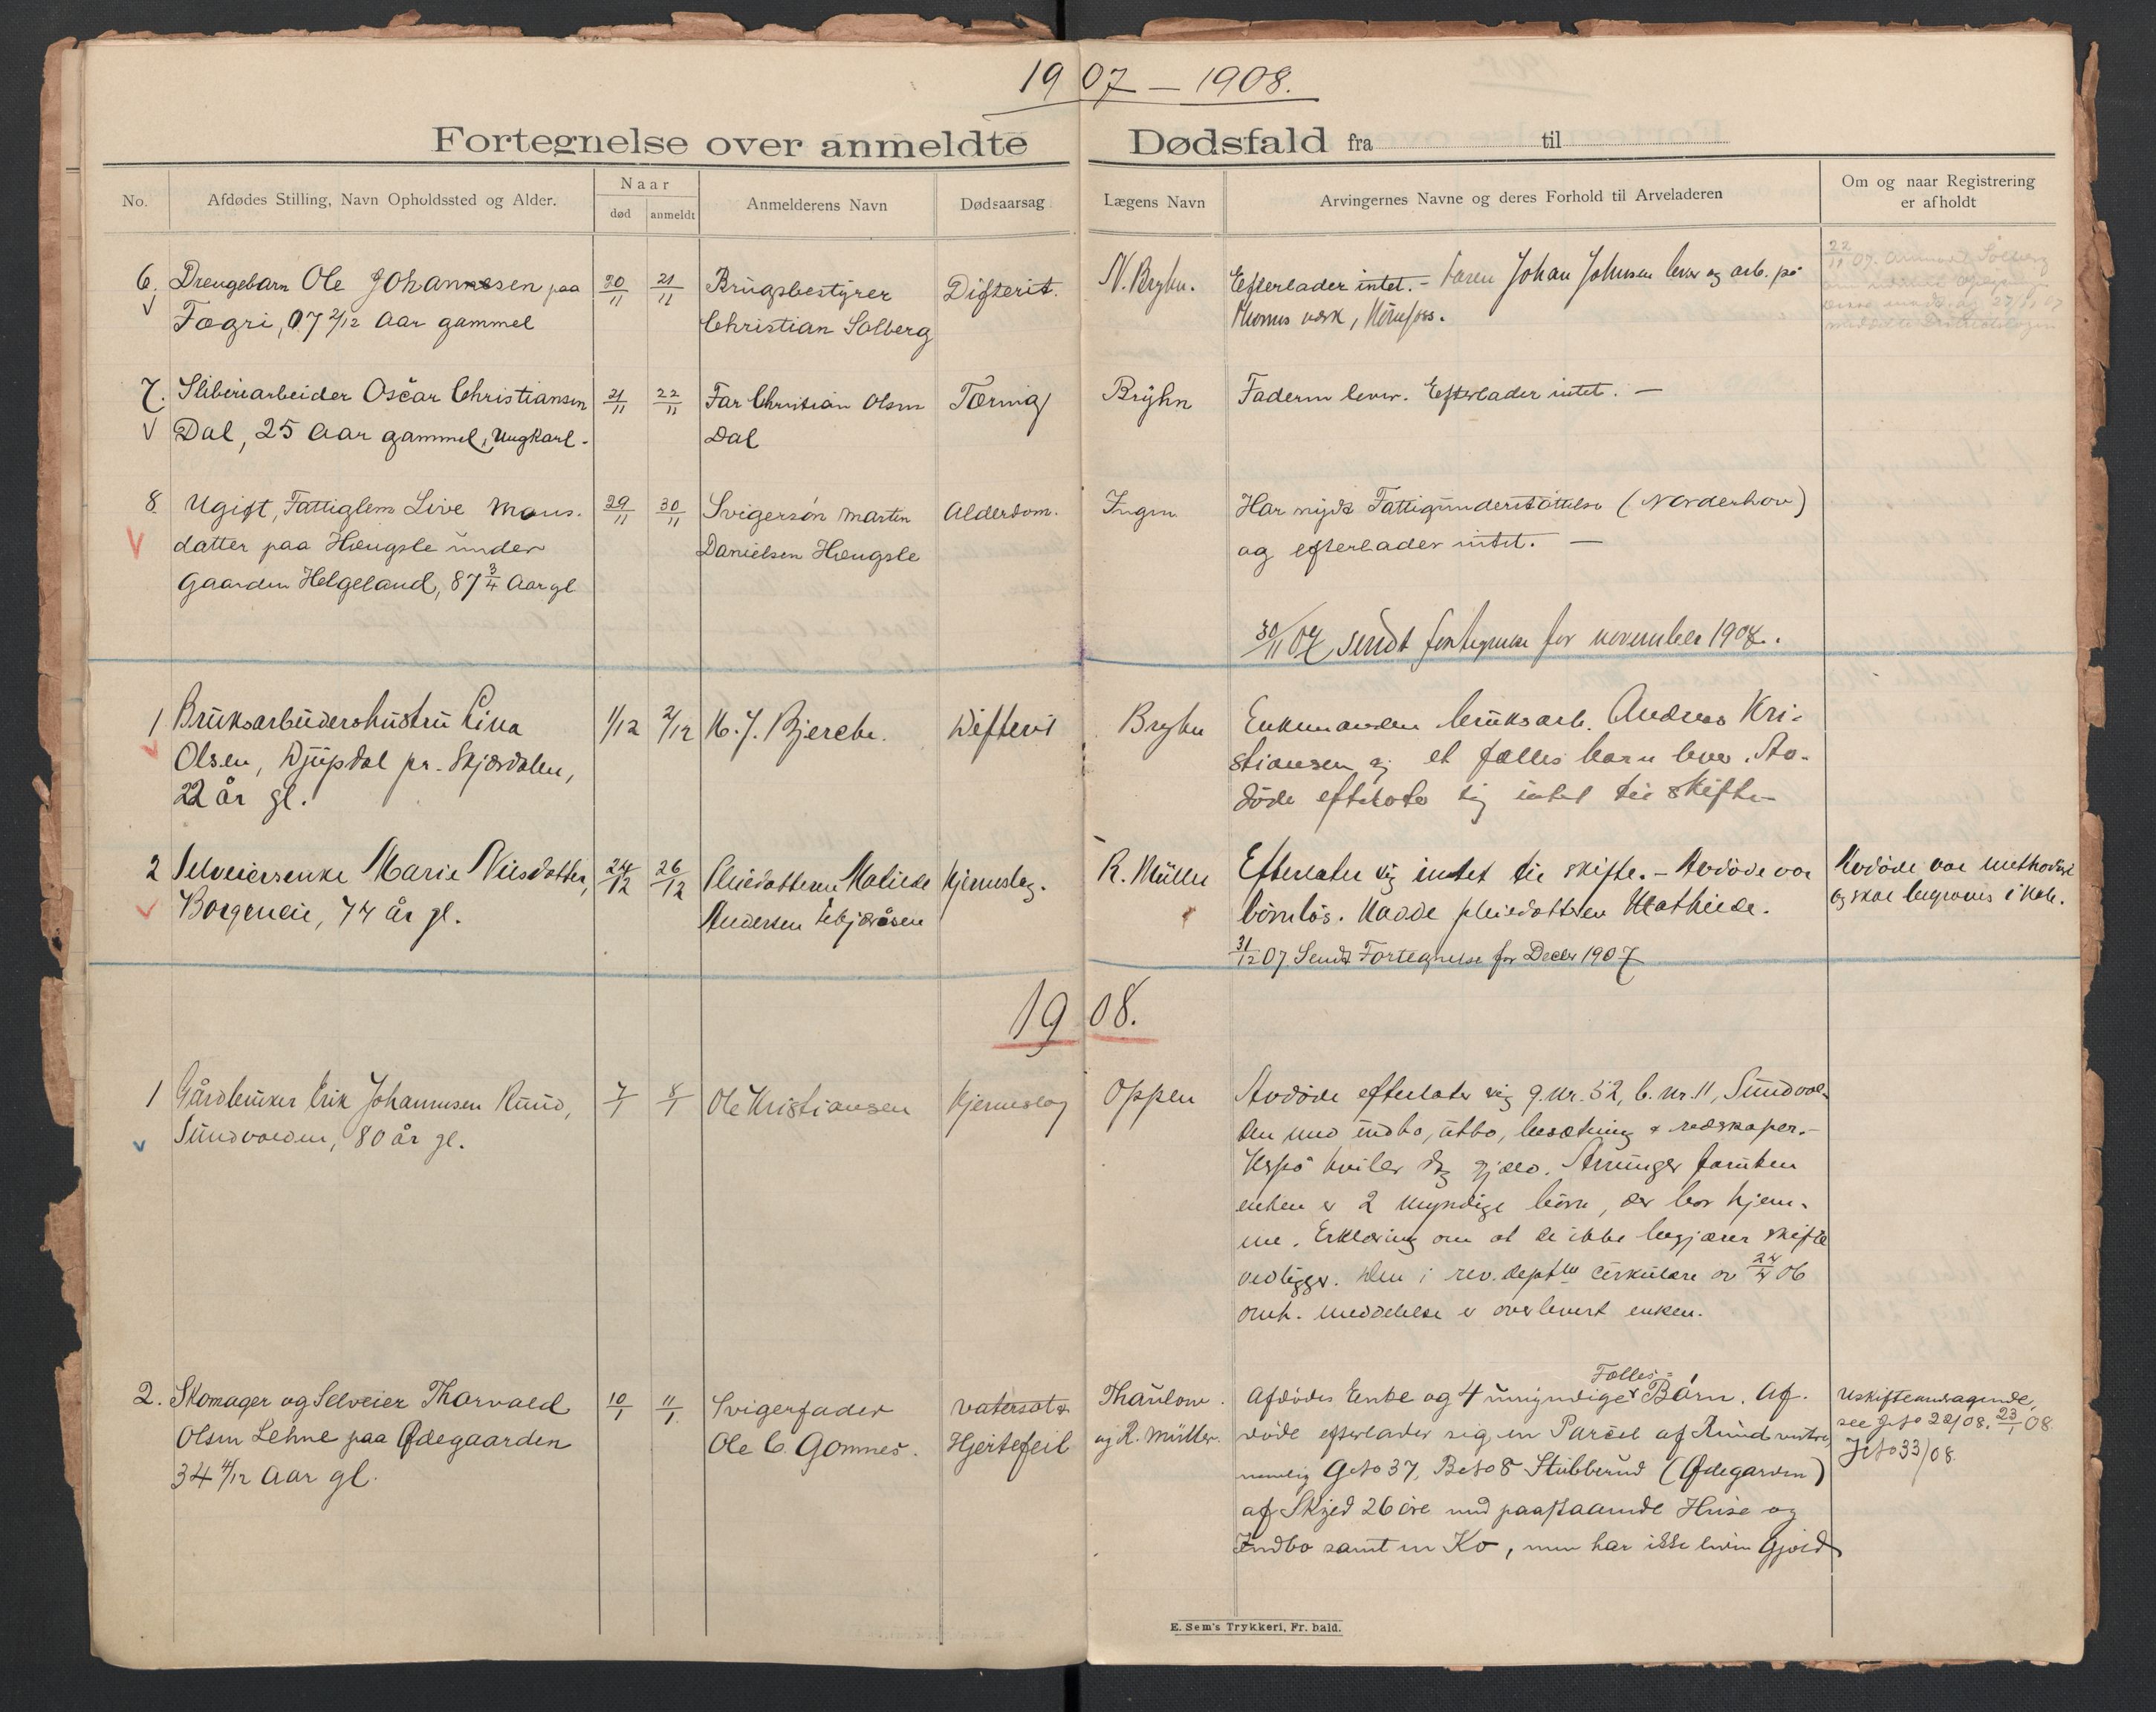 1907 – 1908.
Fortegnelse over anmeldte Dødsfald fra til
No.
Afdødes Stilling, Navn Opholdssted og Alder.
Naar
død
anmeldt
Anmelderens Navn
Dødsaarsag
Lægens Navn
Arvingernes Navne og deres Forhold til Arveladeren
Om og naar Registrering
er afholdt
6. Drengebarn Ole Johannesen paa
Fægri, 07 2/12 Aar gammel
20/11
21/11
Brugsbestyrer
Christian Solberg
Difterit.
N. Bryhn.
Efterlader intet. – Faren Johan Johnsen lever og arb. på
værk, Hönefoss.
22/11 07. Solberg
7. Sliberiarbeider Oscar Christiansen
Dal, 25 Aar gammel, Ungkarl.
21/11
22/11
Far Christian Olsen
Dal
Tæring
Bryhn
Faderen lever. Efterlader intet. –
8 Ugift, Fattiglem Live Mons-
datter paa Hængsle under
Gaarden Helgeland, 87 3/4 Aar gl
29/11
30/11
Svigersøn Martin
Danielsen Hængsle
Alderdom.
Ingen
Har nydt Fattigunderstøttelse (Norderhov)
og efterlader intet. –
30/11 07 sendt fortegnelse for november 1907.
1 Bruksarbeidershustru Lina
Olsen, Djupdal pr. Skjærdalen,
22 år gl.
1/12
2/12
K. J. Bjerche.
Difterit
Bryhn
Enkemanden bruksarb. Andreas Kri-
stiansen og et fælles barn lever. Av-
døde efterlater sig intet til skifte –
2 Selveiersenke Marie Nilsdatter,
Borgeneie, 74 år gl.
24/12
26/12
Pleiedatteren Matilde
Andersen
Hjerneslag.
R. Müller
Efterlater sig intet til skifte. – Avdøde var
börnlös. Havde pleiedatteren Mathilde.
Avdöde var methodist
og skal begraves i Hole.
31/12 07. Sendt Fortegnelse for Decbr 1907
1908.
1 Gårdbruker Erik Johannesen Rund,
Sundvolden, 80 år gl.
7/1
8/1
Ole Kristiansen
Hjerneslag
Oppen
Avdøde efterlater sig g.nr. 52, b.nr. 11, Sundvol-
den med indbo, utbo, besætning & redskaper. –
Herpå hviler dog gjæld. Arvinger foruten
enken er 2 myndige börn, der bor hjem-
me. Erklæring om at de ikke begjærer skifte
vedligger. Den i rev. deptts cirkulære av 24/4 06
omh. meddelelse er overlevert enken.
2. Skomager og Selveier Thorvald
Olsen Lehne paa Ødegaarden
34 4/12 Aar gl.
10/1
11/1
Svigerfader
Ole C. Gomnes.
Vatersot &
Hjertefeil
Thaulow.
og R. Müller.
Fælles-
Afdødes Enke og 4 umyndige Børn. Af-
døde efterlader sig en Parcel af Rund vestre,
nemlig GNo 37, BNo 8 Stubberud (Ødegarden)
af Skyld 26 øre med paastaaende Huse og
Indbo samt en Ko, men har ikke liden Gjæld
Uskifteandragende,
see JNo 22/08. 23/1 08.
JNo 33/08.
E. Sem's Trykkeri, Fr. hald.